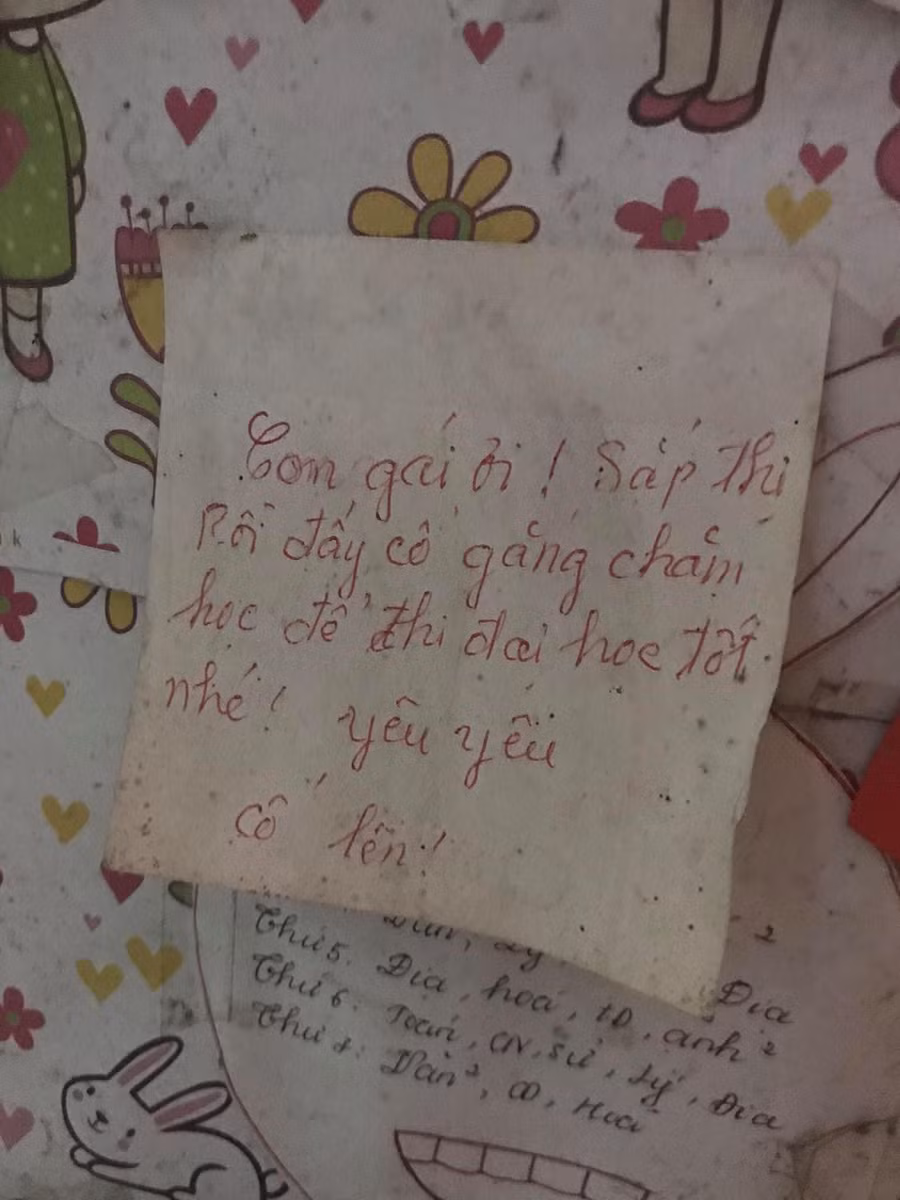 Con gái ơi! Sắp thi
Rồi đấy cố gắng chăm
học để thi đại học tốt
nhé! yêu yêu
cố lên!
2
Thứ 5. Địa, hoá, TD, anh²
Địa
Thứ 6. Toán, CN, sử, Lý, Địa
Văn², CD, Hoá
k